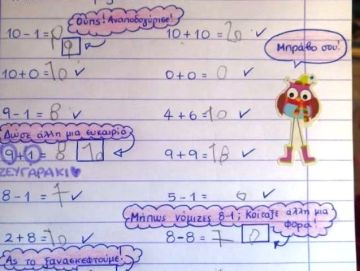 Ούπς! Αναποδογύρισε!
10-1= 9
10+10=20 ✓
Μπράβο σου!
10+0=10 ✓
0+0= 0 ✓
9-1= 8 ✓
4+6=10 ✓
Δώσε άλλη μια ευκαιρία
9+1= 8 10
9+9=18 ✓
ΖΕΥΓΑΡΑΚΙ
8-1= 7 ✓
5-1= ✓
Μήπως νόμιζες 8-1; Κοίταξε άλλη μια φορά!
2+8=10 ✓
8-8= 7 0
Ας το ξανασκεφτούμε.